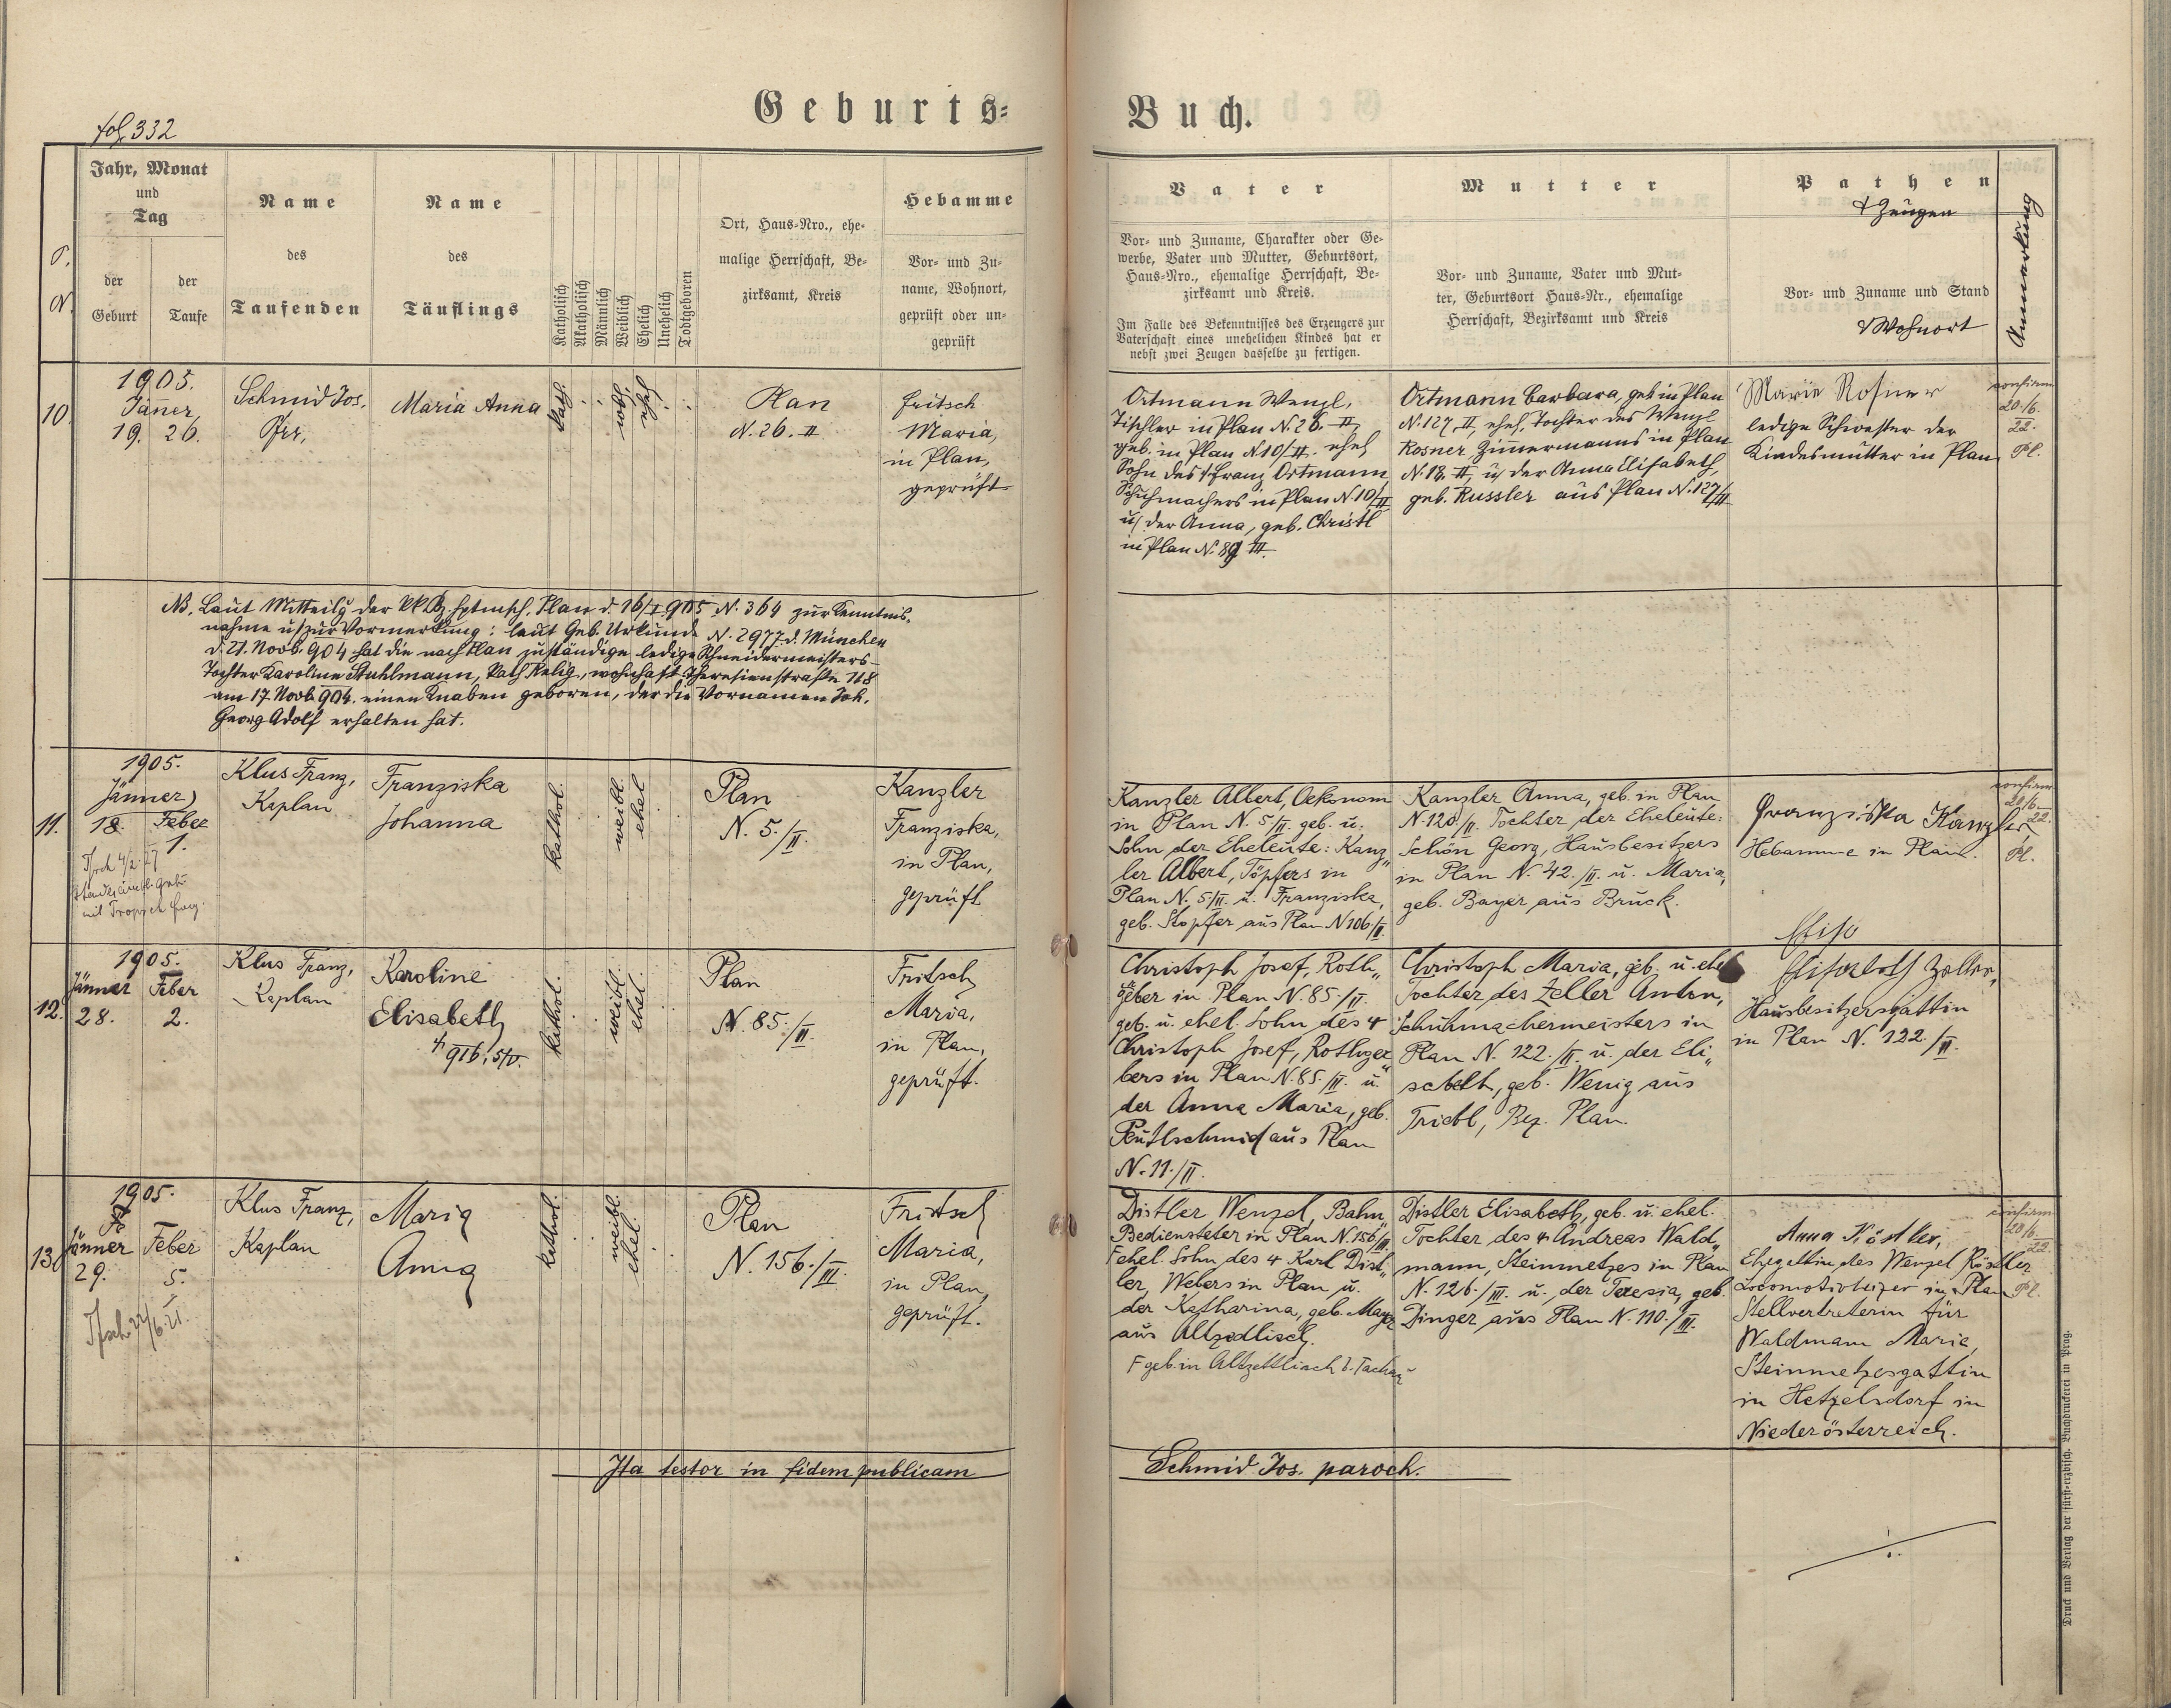 Geburts=
Buch.
fol. 332
P. N.
Jahr, Monat
und
Tag
der
Geburt
der
Taufe
Name
des
Taufenden
Name
des
Täuflings
Katholisch
Akatholisch
Männlich
Weiblich
Ehelich
Unehelich
Todtgeboren
Ort, Haus-Nro., ehe-
malige Herrschaft, Be-
zirksamt, Kreis
Hebamme
Vor- und Zu-
name, Wohnort,
geprüft oder un-
geprüft
Vater
Vor- und Zuname, Charakter oder Ge-
werbe, Vater und Mutter, Geburtsort,
Haus-Nro., ehemalige Herrschaft, Be-
zirksamt und Kreis.
Im Falle des Bekenntnisses des Erzeugers zur
Vaterschaft eines unehelichen Kindes hat er
nebst zwei Zeugen dasselbe zu fertigen.
Mutter
Vor- und Zuname, Vater und Mut-
ter, Geburtsort Haus-Nr., ehemalige
Herrschaft, Bezirksamt und Kreis
Pathen
& Zeugen
Vor- und Zuname und Stand
& Wohnort
Anmerkung
10.
1905.
Jänner,
19. 26.
Schmid Jos.
Maria Anna
kath.
wbl.
ehel.
Plan
N. 26. II
Fritsch
Maria,
in Plan,
geprüft
Ortmann Wenzl,
Tischler in Plan N. 26. II,
geb. in Plan N 10/II. ehel.
Sohn des † Franz Ortmann,
Schuhmachers in Plan N. 10/II
u. der Anna, geb. Christl
in Plan N. 89 III.
Ortmann Barbara, geb. in Plan
N. 127. II, ehel. Tochter des Wenzl
Rosner, Zimmermanns in Plan
N. 18. II, u. der Anna Elisabeth,
geb. Russler aus Plan N. 127/II
Marie Rosner
ledige Schwester der
Kindesmutter in Plan
confirm.
20./6.
22.
Pl.
NB. Laut Mitteilg der kk. Bz. Hptmsch. Plan d. 16/I 905 N. 364 zur Kenntnis-
nahme u. zur Vormerkung: laut Geb. Urkunde N. 2977 d. München
d. 21. Novb. 904 hat die nach Plan zuständige ledige Schneidermeisters-
Tochter Karoline Stuhlmann, kath. Relig., wohnhaft Theresienstraße 118
am 17. Novb. 904. einen Knaben geboren, der die Vornamen Joh.
Georg Adolf erhalten hat.
11.
1905.
Jänner
18. Feber
1.
Klus Franz,
Kaplan
Franziska
Johanna
kathol.
weibl.
ehel.
Plan
N. 5./II.
Kanzler
Franziska,
in Plan,
geprüft
Kanzler Albert, Oekonom
in Plan N. 5/II. geb. u.
Sohn der Eheleute: Kanz„
ler Albert, Töpfers in
Plan N. 5/II. u. Franziska,
geb. Stopfer aus Plan N 106/II.
Kanzler Anna, geb. in Plan
N. 120./II. Tochter der Eheleute:
Schön Georg, Hausbesitzers
in Plan N. 42./II. u. Maria,
geb. Bayer aus Bruck.
Franziska Kanzler
Hebamme in Plan.
confirm.
20./6.
22.
Pl.
12.
1905.
Jänner Feber
28. 2.
Klus Franz,
Kaplan
Karoline
Elisabeth
† 916. 5/V.
kathol.
weibl.
ehel.
Plan
N. 85./II.
Fritsch
Maria,
in Plan,
geprüft.
Christoph Josef, Roth„
geber in Plan N. 85./II.
geb. u. ehel. Sohn des †
Christoph Josef, Rothger„
bers in Plan N. 85./II. u.
der Anna Maria, geb.
Peutlschmid aus Plan
N. 11./II.
Christoph Maria, geb. u. ehel.
Tochter des Zeller Anton,
Schuhmachermeisters in
Plan N. 122./II. u. der Eli„
sabeth, geb. Wenig aus
Triebl, Bez. Plan.
Elisa
Elisabeth Zeller,
Hausbesitzersgattin
in Plan N. 122./II.
13.
1905.
Jänner Feber
29. 5.
Klus Franz,
Kaplan
Maria
Anna
kathol.
weibl.
ehel.
Plan
N. 156./III.
Fritsch
Maria,
in Plan,
geprüft.
Distler Wenzel, Bahn„
Bediensteter in Plan N. 156/III
F ehel. Sohn des † Karl Dist„
ler, Webers in Plan u.
der Katharina, geb. Mayer
aus Altzedlisch.
F geb. in Altzettlisch b. Tachau
Distler Elisabeth, geb. u. ehel.
Tochter des † Andreas Wald„
mann, Steinmetzes in Plan
N. 126./III. u. der Teresia, geb.
Dinger aus Plan N. 110./III.
Anna Köstler,
Ehegattin des Wenzel Köstler
Locomotivheizer in Plan
Stellvertreterin für
Waldmann Maria,
Steinmetzesgattin
in Hetzelsdorf in
Niederösterreich.
confirm.
20/6.
22.
Pl.
Ita testor in fidem publicam
Schmid Jos. paroch.
Druck und Verlag der fürst-erzbisch. Buchdruckerei in Prag.